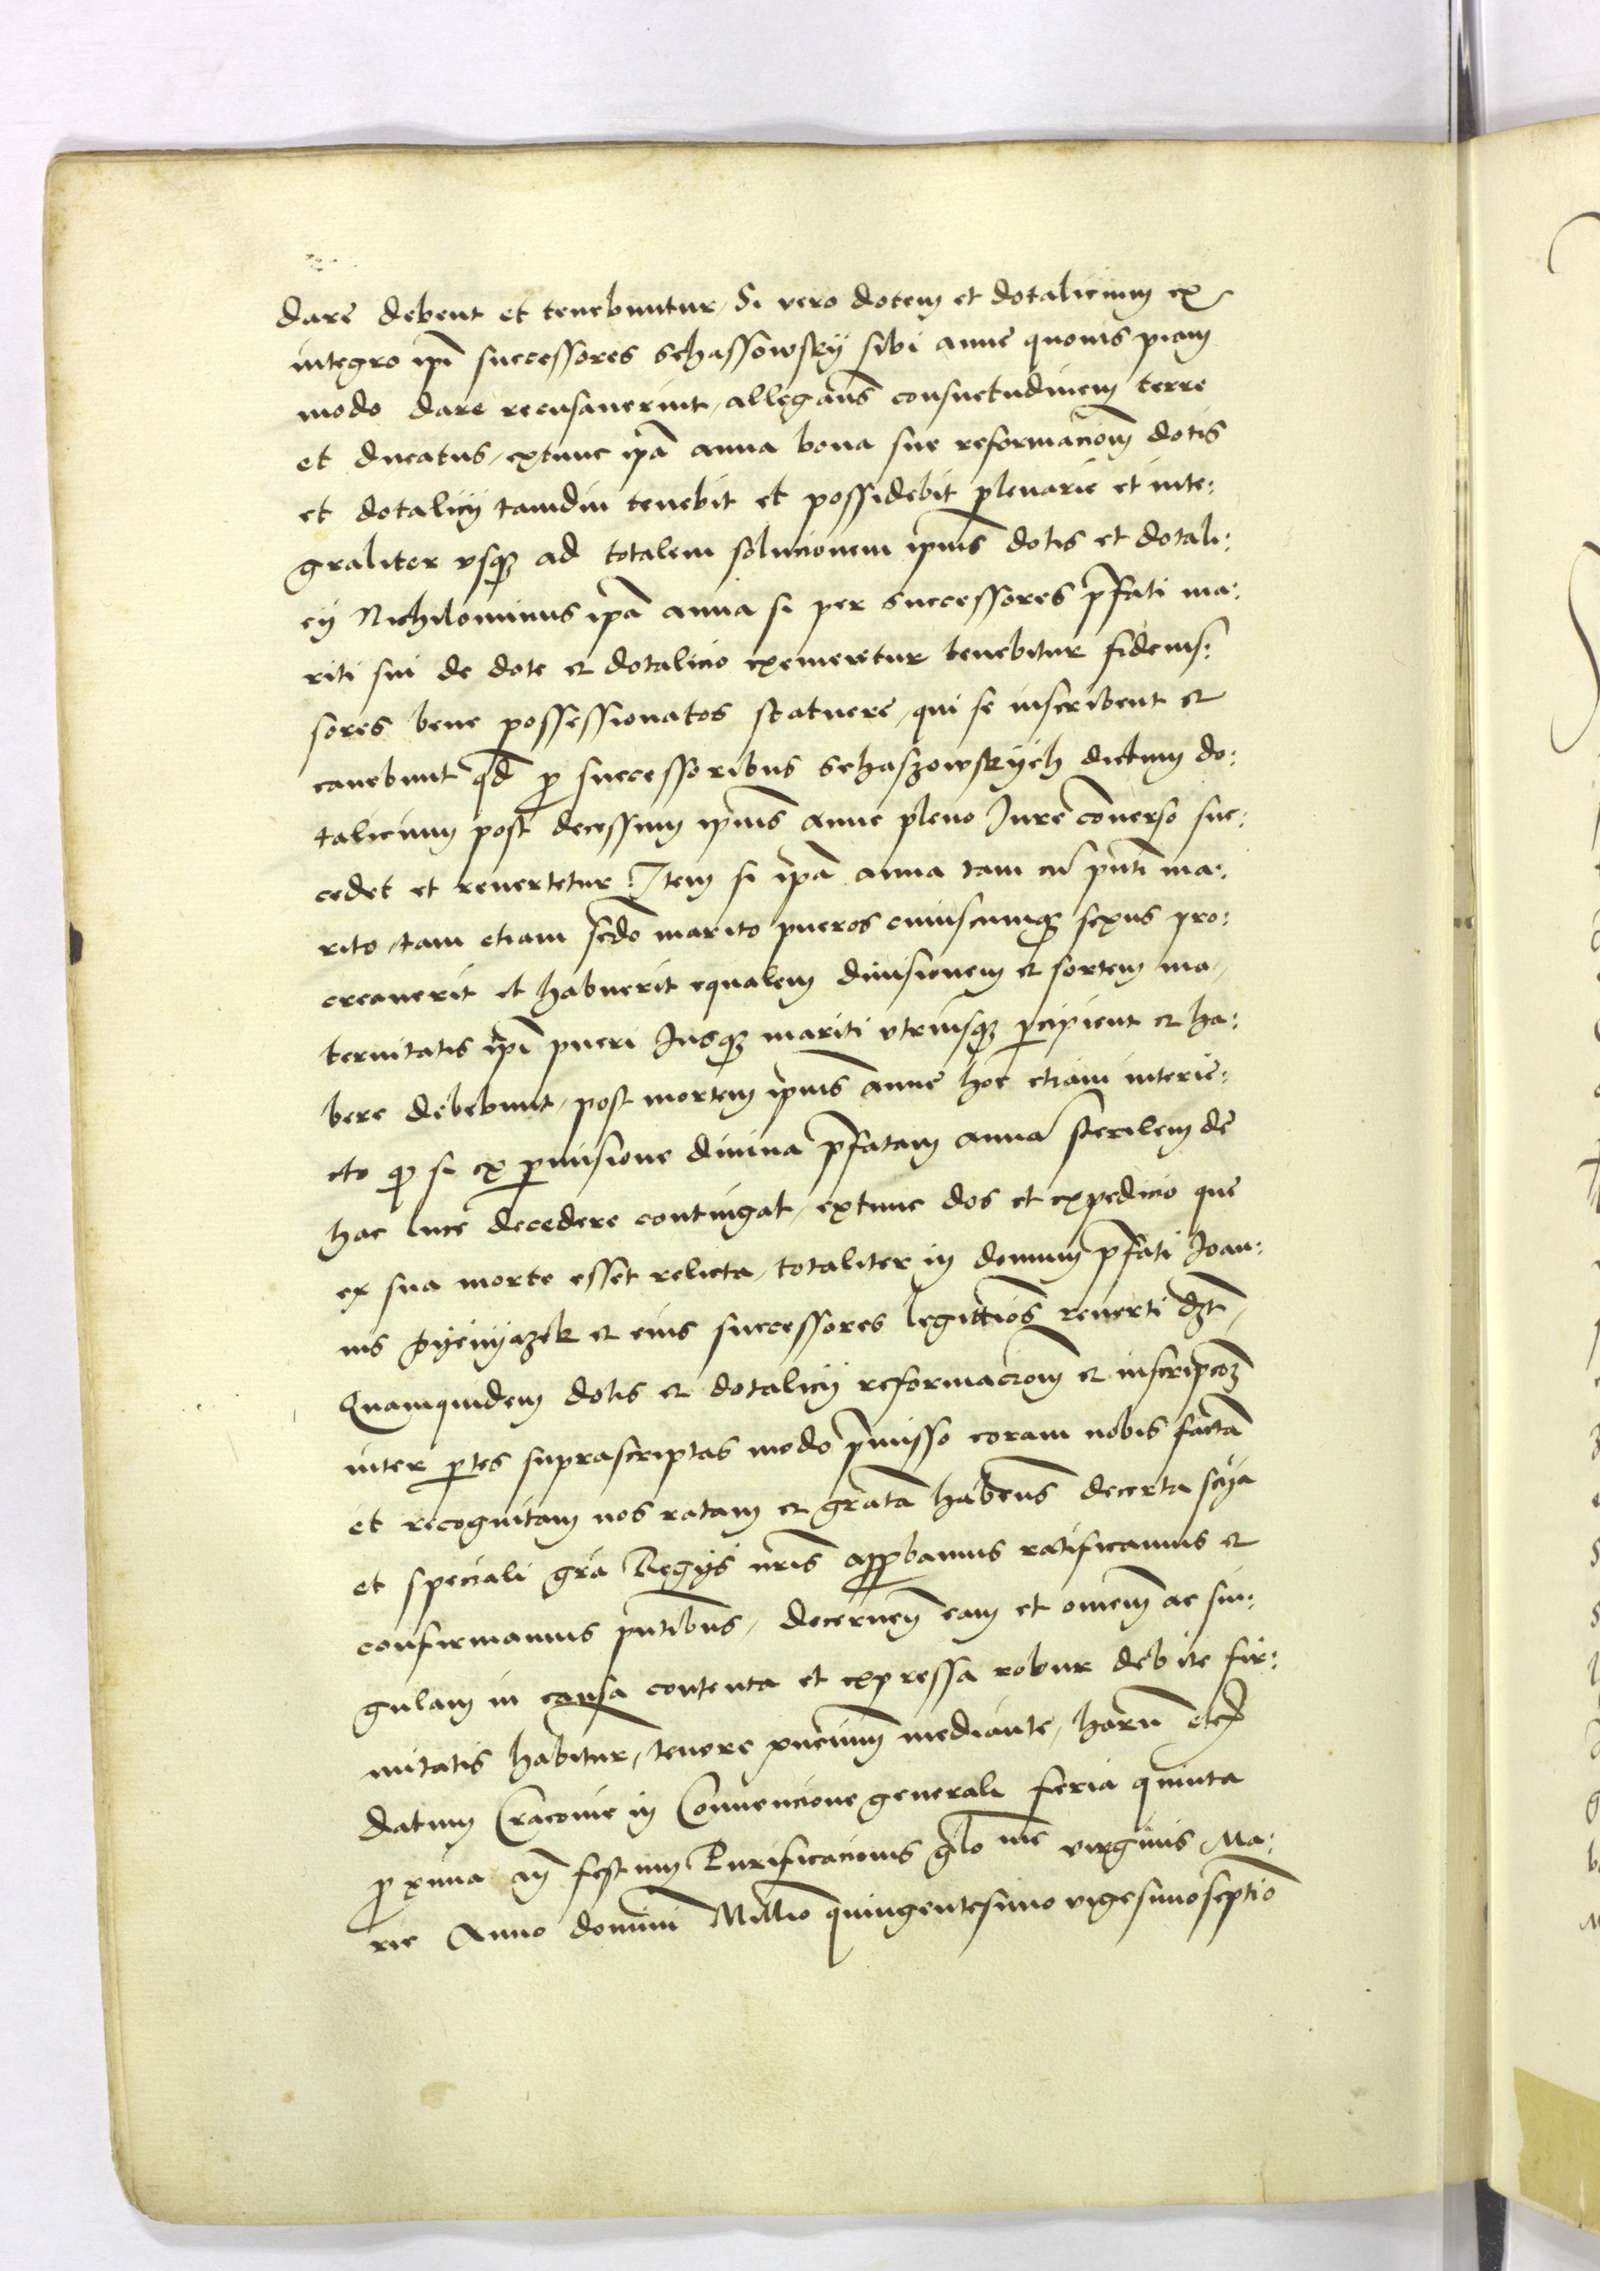 dare debent et tenebuntur, Si vero dotem et dotalicium ex
integro ip̄i successores Schassowsky sibi anne quouis piam
modo dare recusauerint, allegan̄s consuetudinem terre
et ducatus, extunc ip̄a anna bona sue reformaciōm dotis
et dotalicij tamdiu tenebit et possidebit plenarie et inte:
graliter vsq̨ ad totalem solucionem ipiūs dotis et dotali:
cij Nichilominus ip̄a anna si per successores p̄fati ma:
riti sui de dote et dotalicio exemeretur tenebitur fideius:
sores bene possessionatos statuere, qui se inscribent et
cauebunt qd̄ p successoribus Schaszowskych dictum do:
talicium post decessum ipiūs anne pleno Iure cōuerso suc:
cedet et reuertetur Item si ip̄a anna tam cū pn̄ti ma:
rito, tam etiam scd̄o marito pueros cuiuscumq̨ sexus pro:
creauerit et habuerit equalem diuisionem et sortem ma,
ternitatis ip̄i pueri Iusq̨ mariti vtriusq̨ pcipient et ha:
bere debebunt, post mortem ipiūs anne hoc etiam interie:
cto q̨ si ex pmisione diuina p̄fatam annā sterilem de
hac luce decedere contingat, extunc dos et expedicio que
ex sua morte esset relicta, totaliter in domum p̄fati Ioan:
nis Pyenyązek et eius successores legittiōs reuerti dz̄t,
Quamquidem dotis et dotalicij reformaciōm et inscripcōz
inter ptes suprascriptas modo p̄misso coram nobis factā
et recognitam nos ratam et gratā haben̄s decerta scīa
et speciali grā Regijs nr̄is appbamus ratificamus et
confirmamus pn̄tibus, decernen̄ eam et omēm ac sin:
gulam in causa contenta et expressa robur debite fir:
mitatis habitur, tenore pn̄cium mediante, harū etc
datum Cracouie in Conuencione generali feria quinta
pxima an̄ festum Purificacionis glo me virginis Ma:
rie Anno domini Millīo quingentesimo vigesimoseptīo